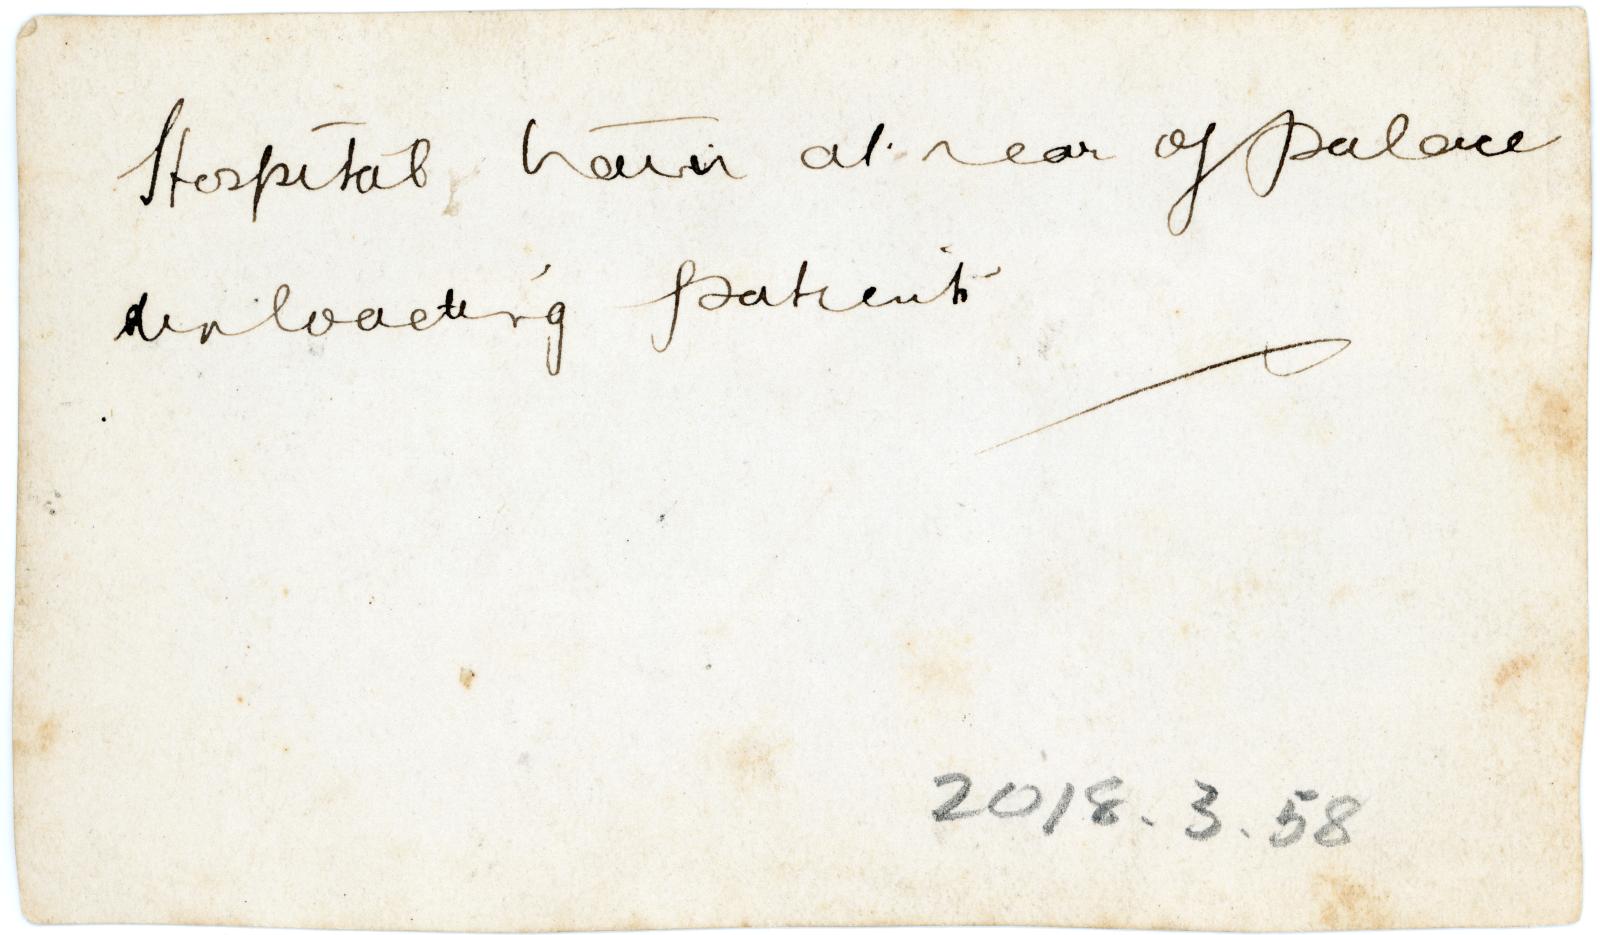 Hospital train at rear of palace
unloading patients
2018.3.58